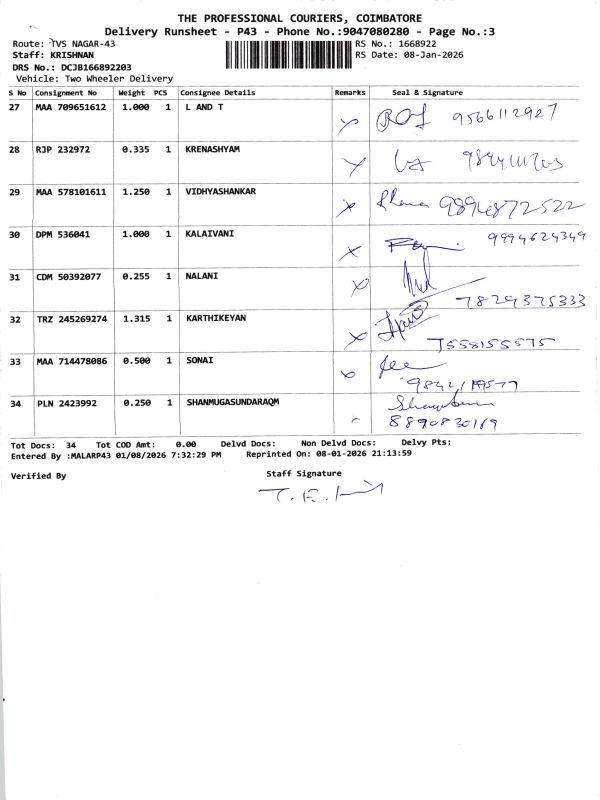 THE PROFESSIONAL COURIERS, COIMBATORE
Delivery Runsheet - P43 - Phone No.:9047080280 - Page No.:3
Route: TVS NAGAR-43 RS No.: 1668922
Staff: KRISHNAN RS Date: 08-Jan-2026
DRS No.: DCJB166892203
Vehicle: Two Wheeler Delivery
S No Consignment No Weight PCS Consignee Details Remarks Seal & Signature
27 MAA 709651612 1.000 1 L AND T 9566112927
28 RJP 232972 0.335 1 KRENASHYAM
29 MAA 578101611 1.250 1 VIDHYASHANKAR 9894872522
30 DPM 536041 1.000 1 KALAIVANI 9994624349
31 CDM 50392077 0.255 1 NALANI 7829375333
32 TRZ 245269274 1.315 1 KARTHIKEYAN
33 MAA 714478086 0.500 1 SONAI
34 PLN 2423992 0.250 1 SHANMUGASUNDARAQM 8890830169
Tot Docs: 34 Tot COD Amt: 0.00 Delvd Docs: Non Delvd Docs: Delvy Pts:
Entered By :MALARP43 01/08/2026 7:32:29 PM Reprinted On: 08-01-2026 21:13:59
Verified By Staff Signature